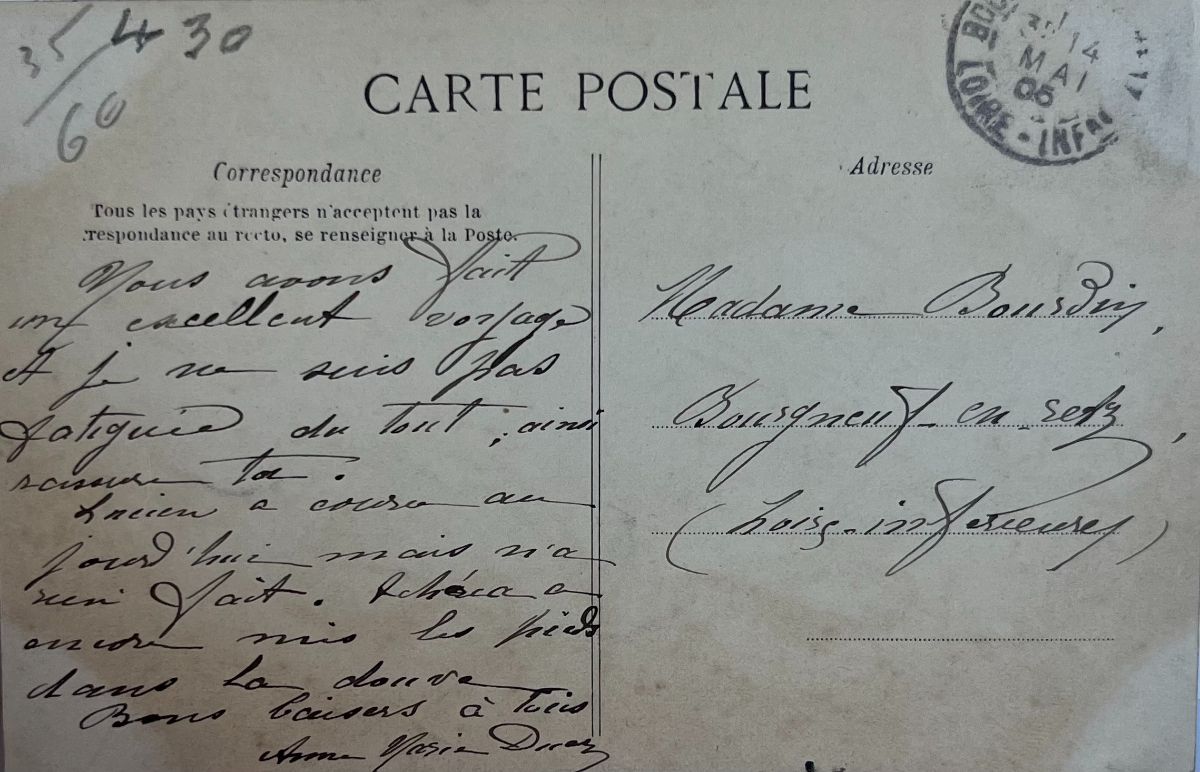 35/60
430
CARTE POSTALE
14
MAI
05
LOIRE-INF
Correspondance
Tous les pays étrangers n'acceptent pas la
respondance au recto, se renseigner à la Poste.
Nous avons fait
un excellent voyage
et je ne suis pas
fatiguée du tout, ainsi
rassure toi.
Lucien a couru au
jourd'hui mais n'a
rien fait. a
encore mis les pieds
dans la douve
Bons baisers à tous
Anne Marie
Adresse
Madame Bourdin,
Bourgneuf-en-retz,
(Loire-inférieure)